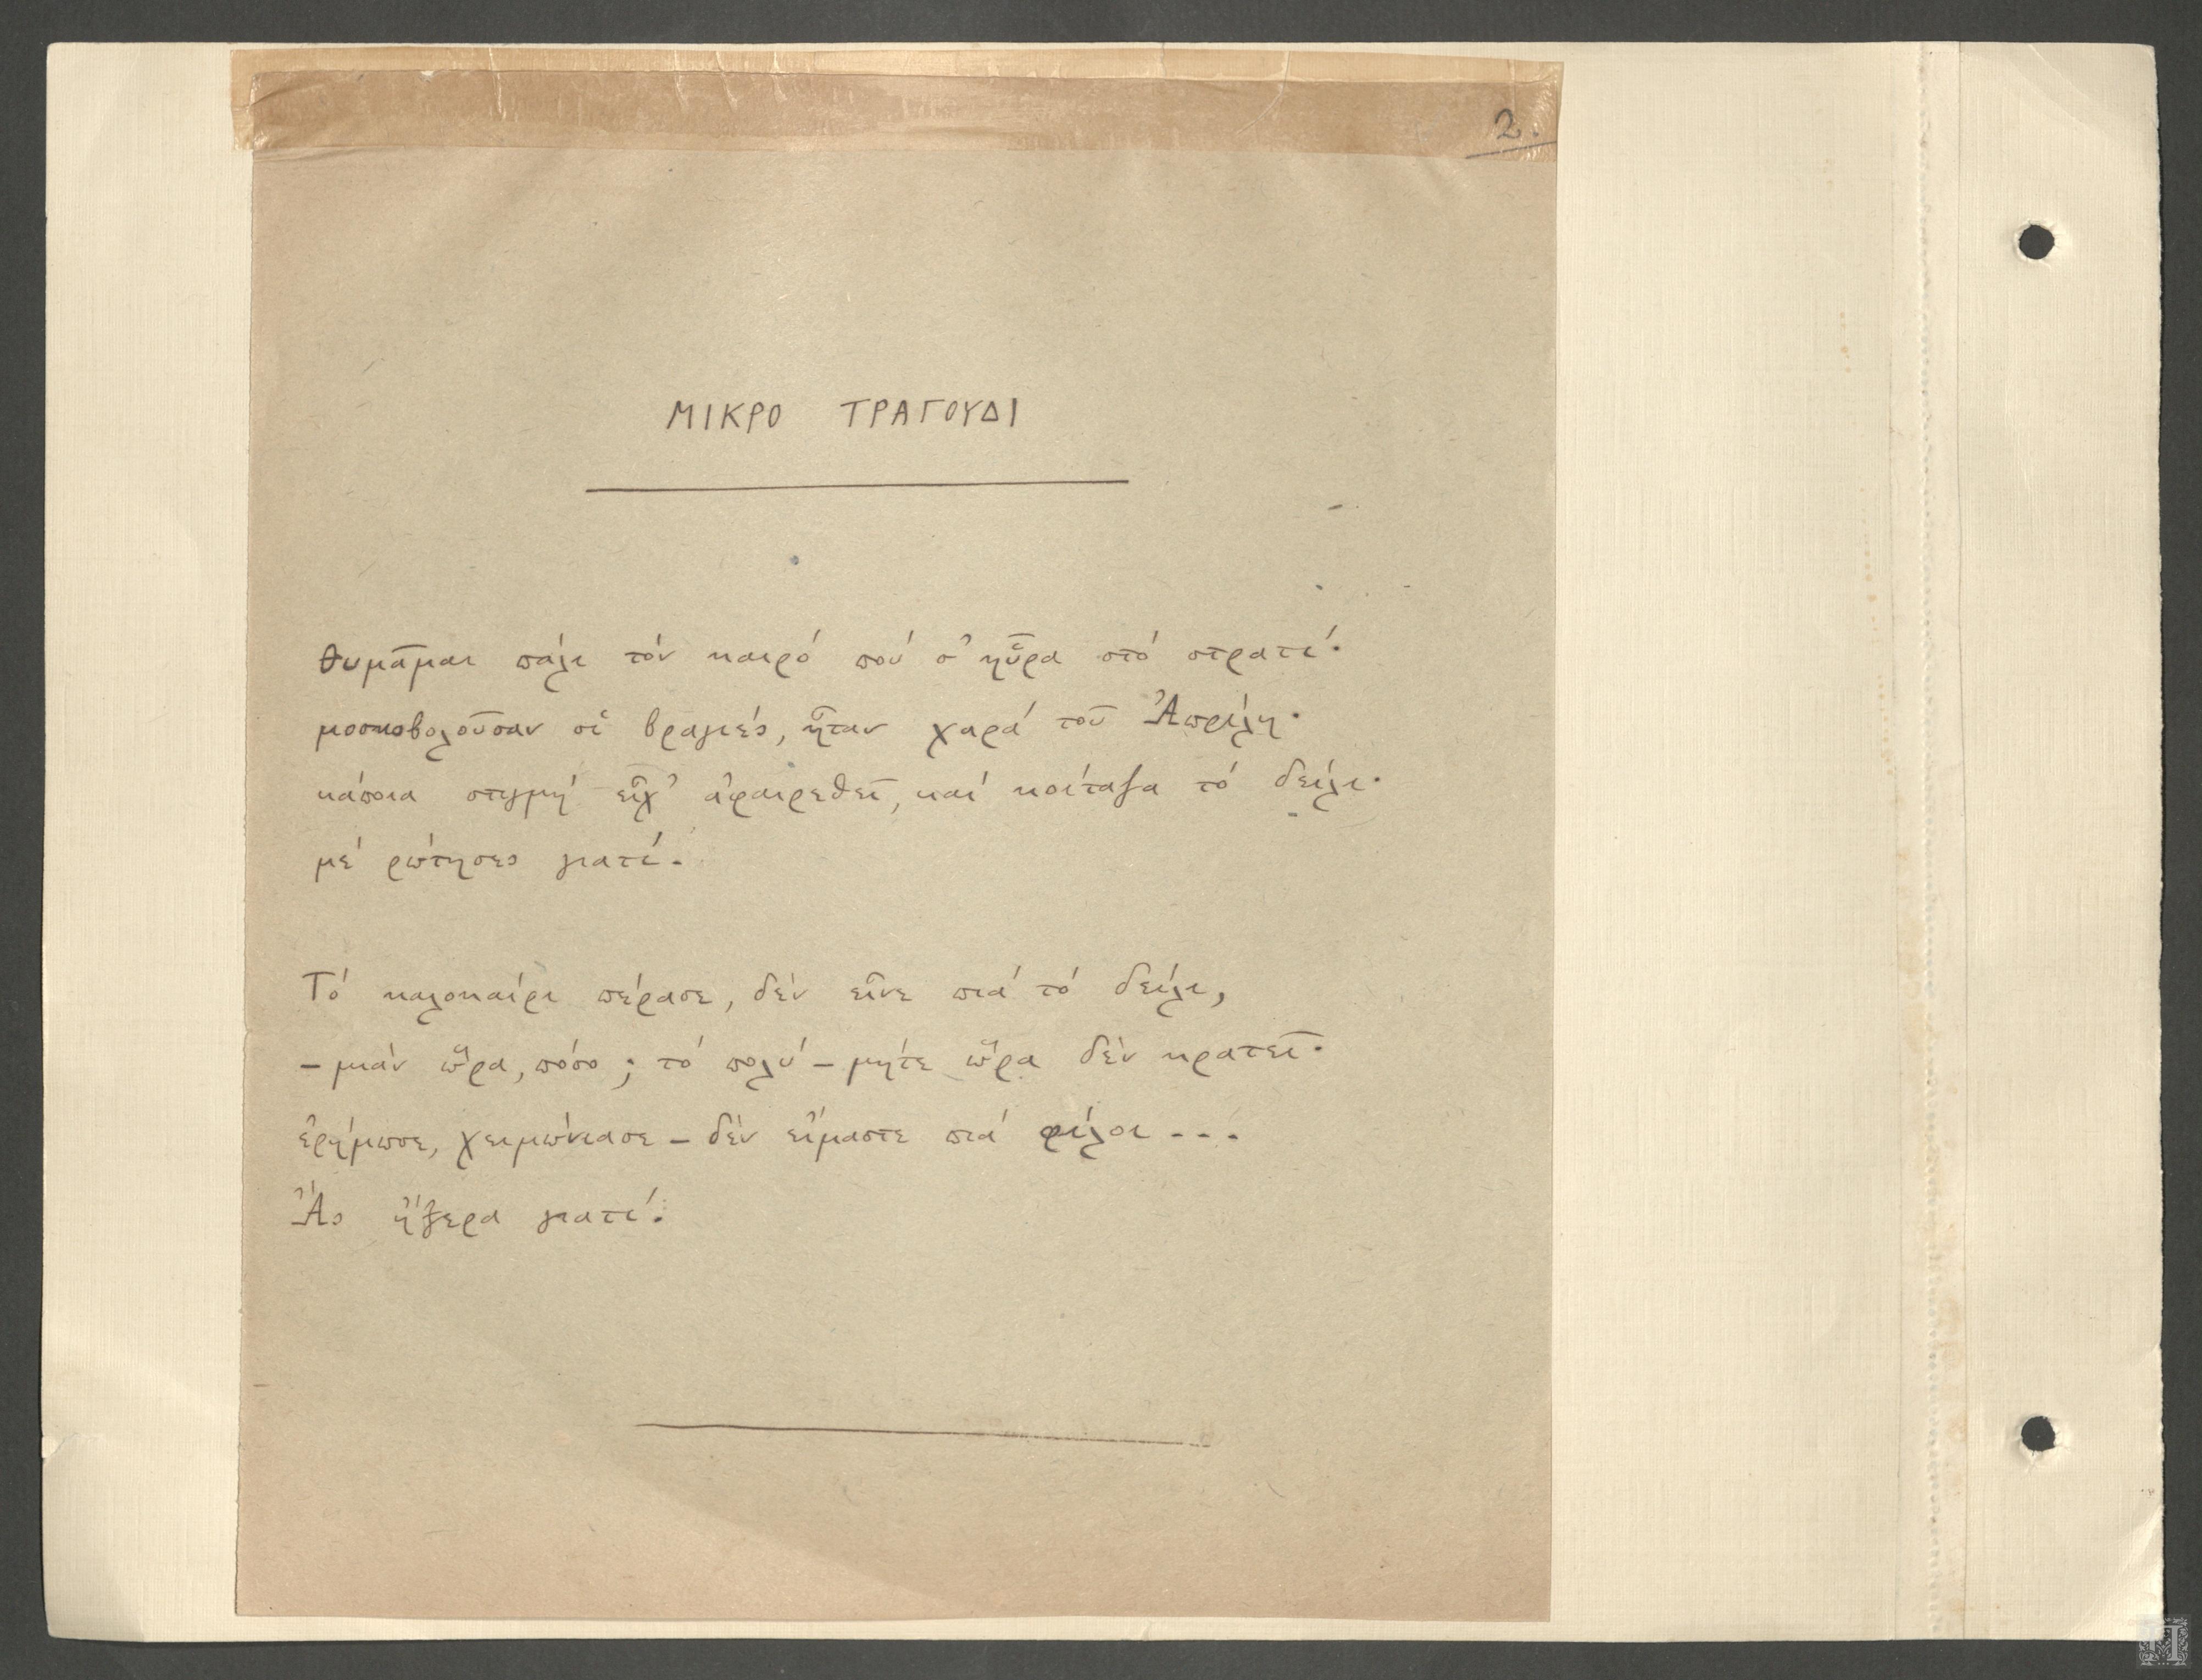 2.
ΜΙΚΡΟ ΤΡΑΓΟΥΔΙ
Θυμᾶμαι πάλι τόν καιρό πού σ' ηὗρα στό στρατί·
μοσκοβολοῦσαν οἱ βραγιές, ἦταν χαρά τοῦ Ἀπρίλη·
κάποια στιγμή εἶχ' ἀφαιρεθεῖ, καί κοίταξα τό δείλι·
μέ ρώτησες γιατί.
Τό καλοκαίρι πέρασε, δέν εἶνε πιά τό δείλι,
– μιάν ὥρα, πόσο; τό πολύ – μήτε ὥρα δέν κρατεῖ·
ἐρήμωσε, χειμώνιασε – δέν εἴμαστε πιά φίλοι...
Ἄς ἤξερα γιατί.